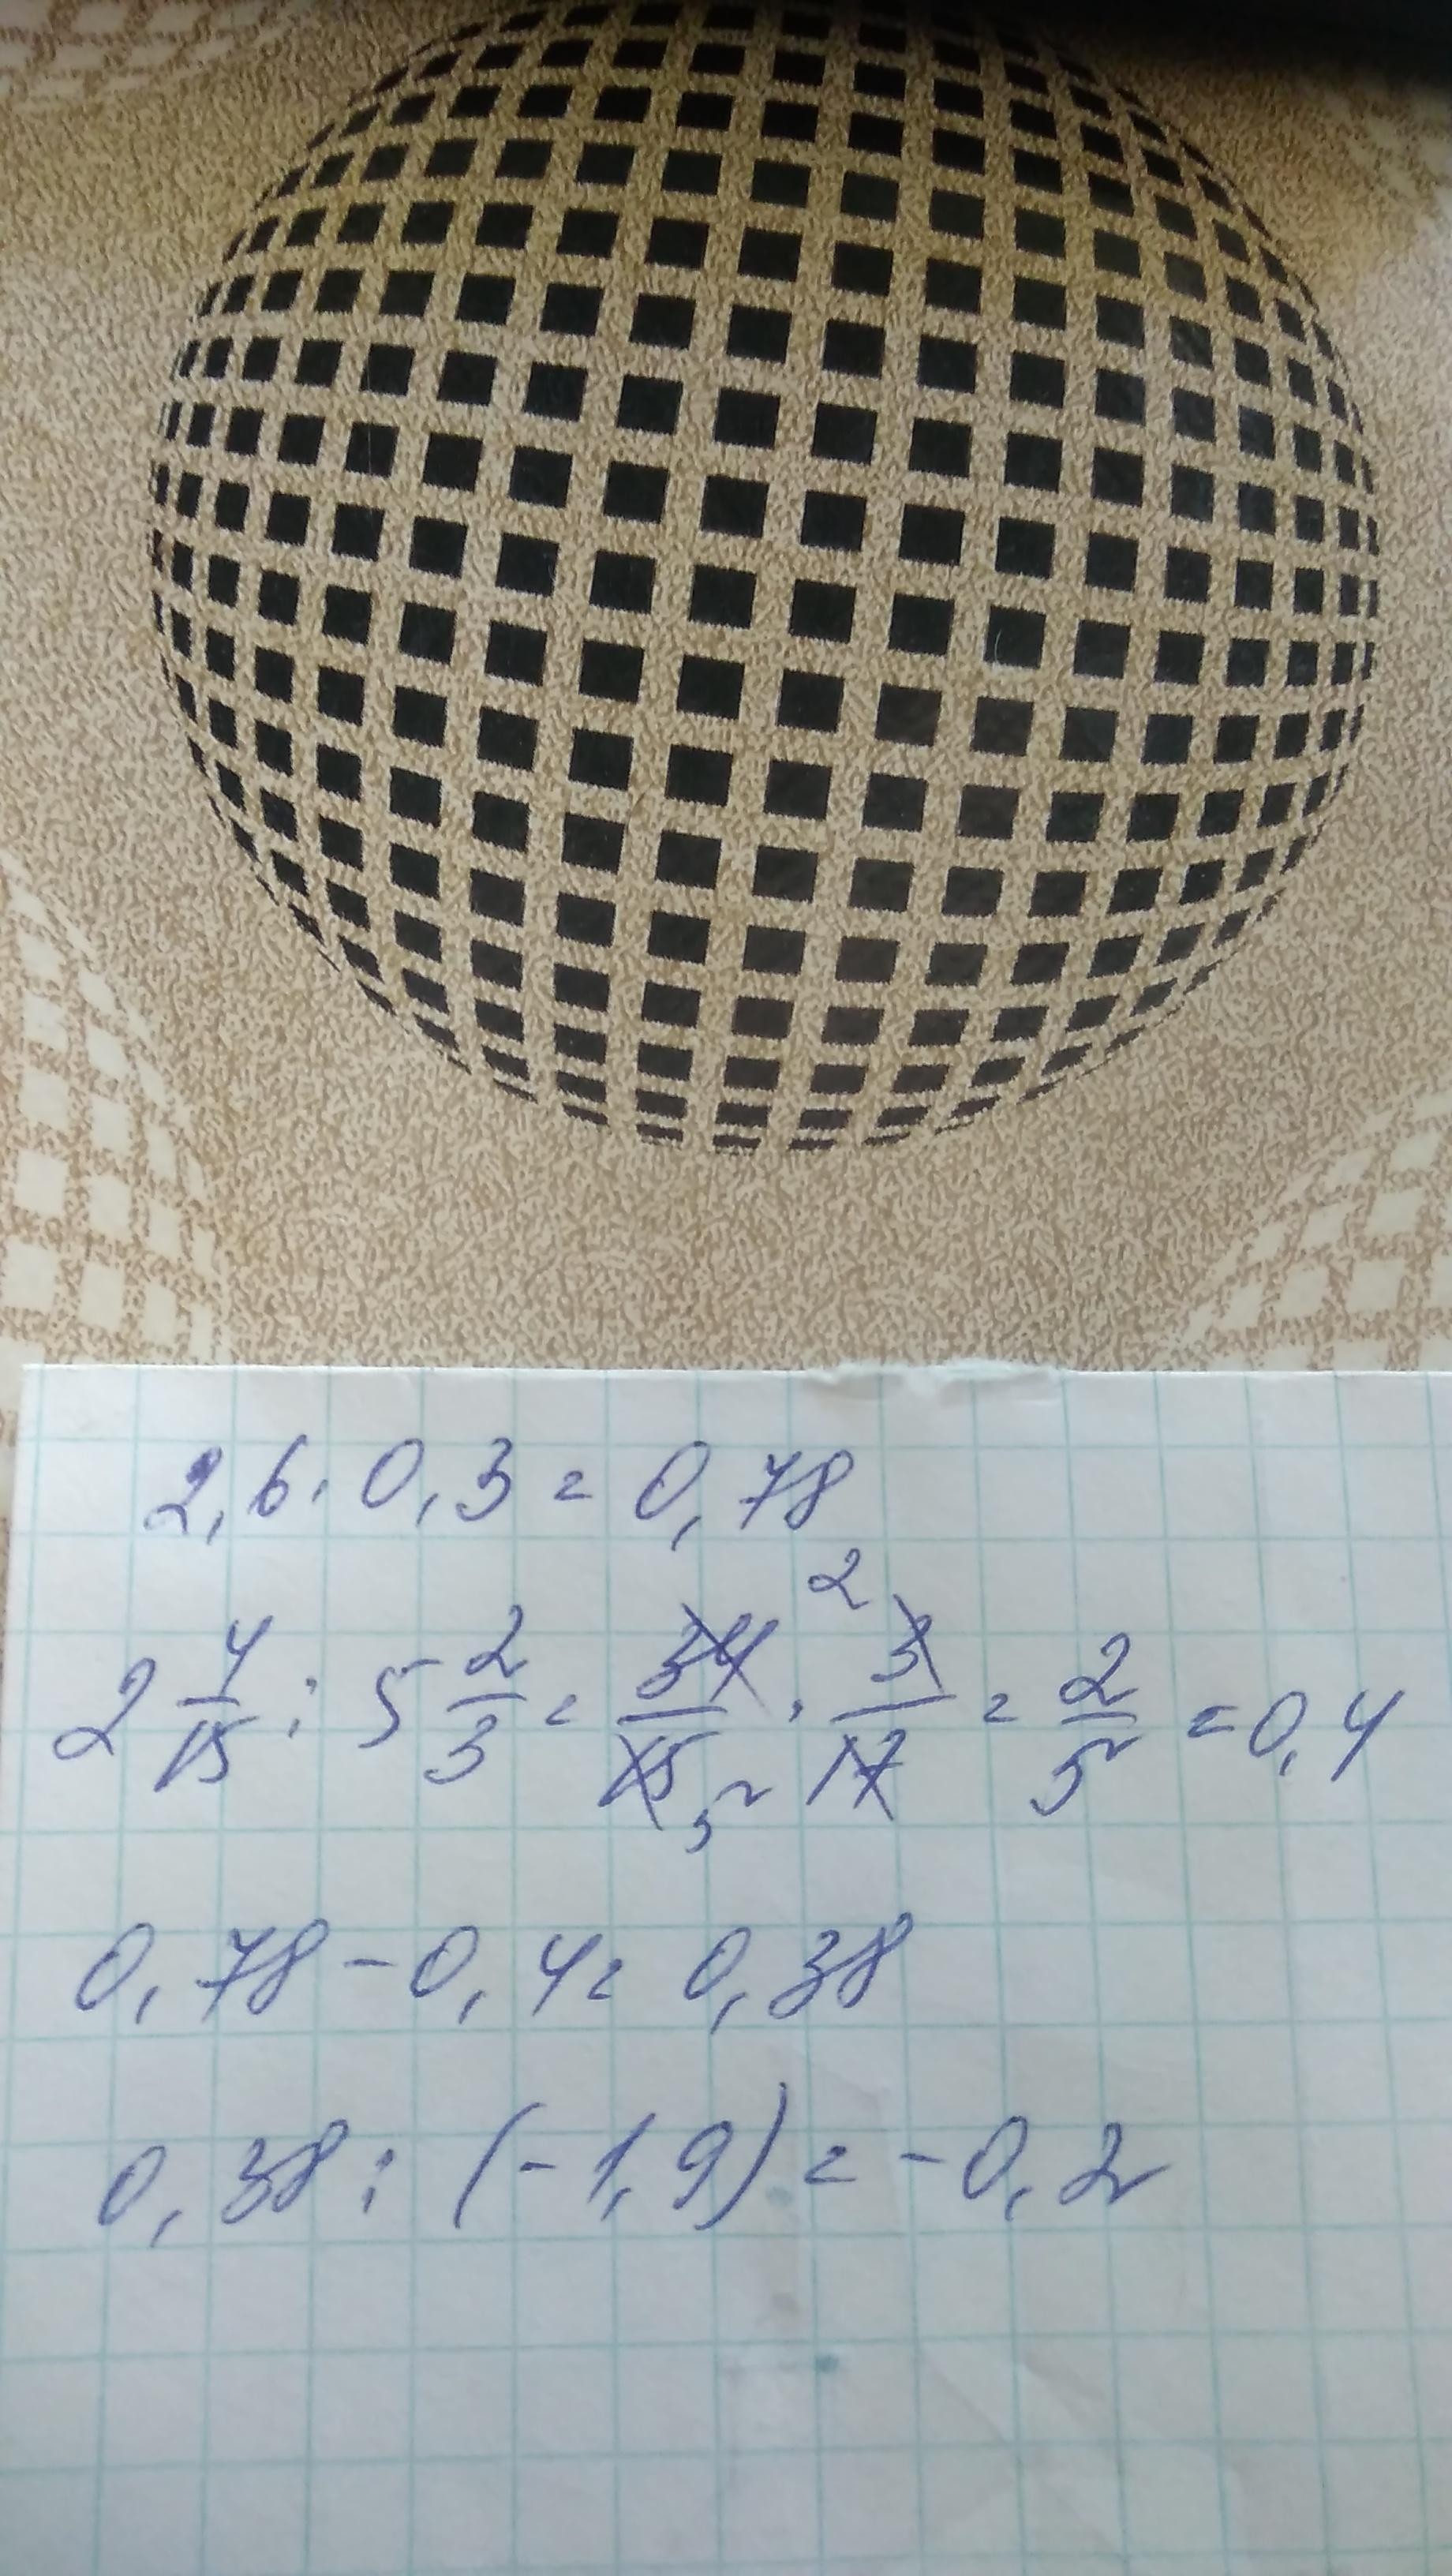 2,6 · 0,3 = 0,78
2 4/15 : 5 2/3 = 34/15 · 3/17 = 2/5 = 0,4
0,78 - 0,4 = 0,38
0,38 : (-1,9) = -0,2